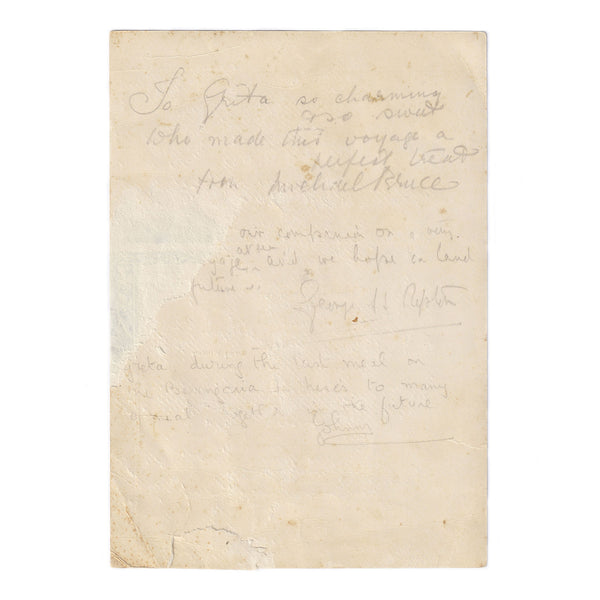 To Greta so charming
& so sweet
who made this voyage a
perfect treat
from Michael Bruce
our companion on a very
at sea
and we hope on land
future
George H
greta during the last meal on
the Berengaria & here's to many
meal together in the future